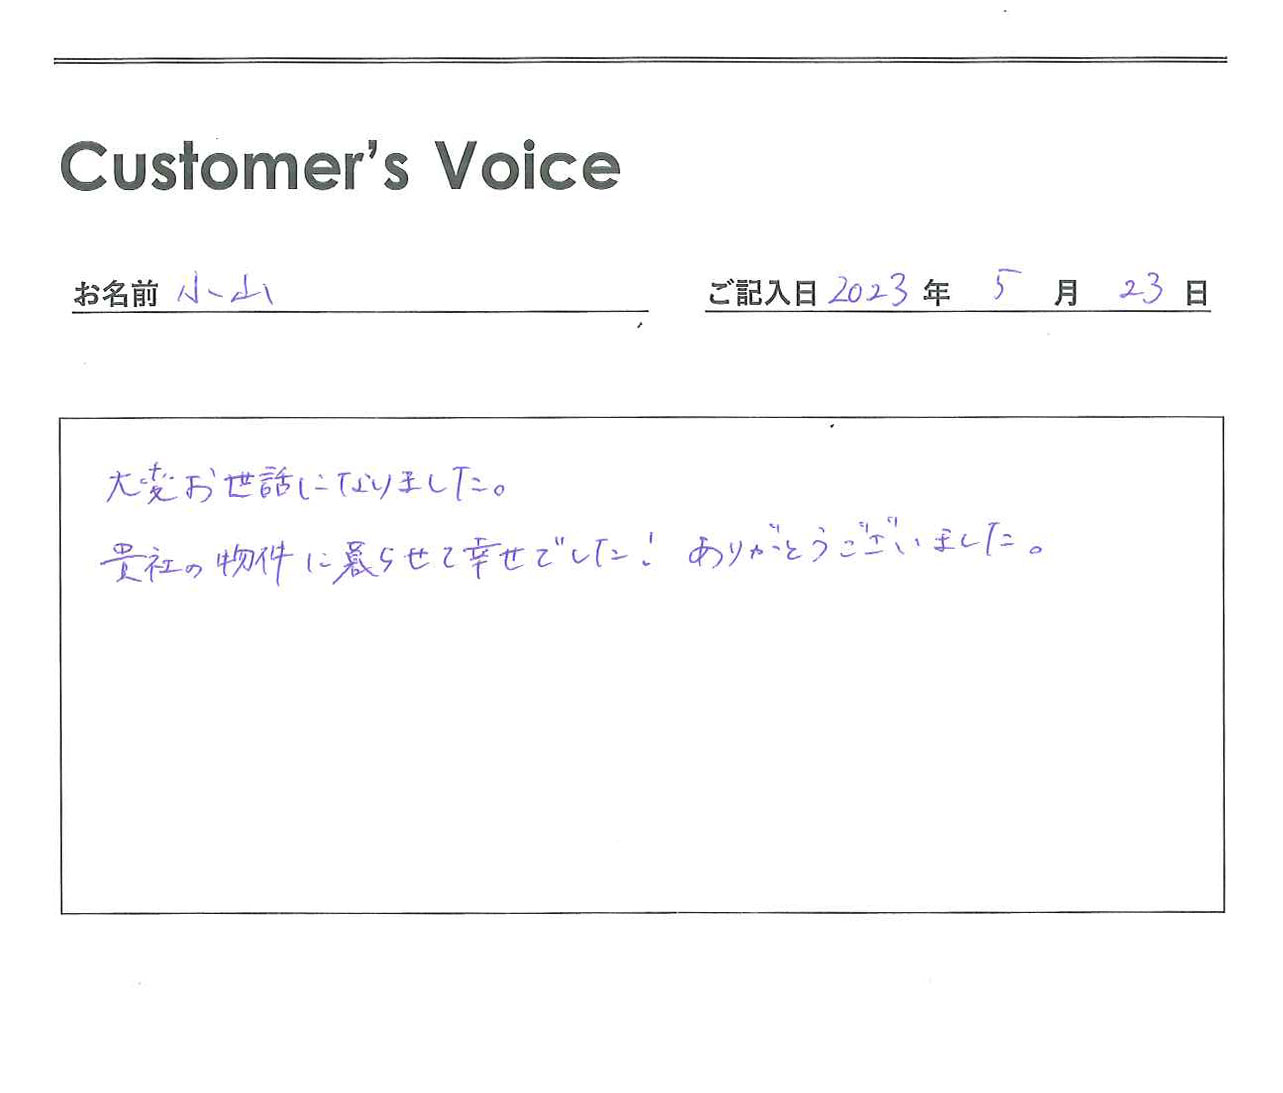 Customer's Voice
お名前 小山 ご記入日 2023 年 5 月 23 日
大変お世話になりました。
貴社の物件に暮らせて幸せでした! ありがとうございました。